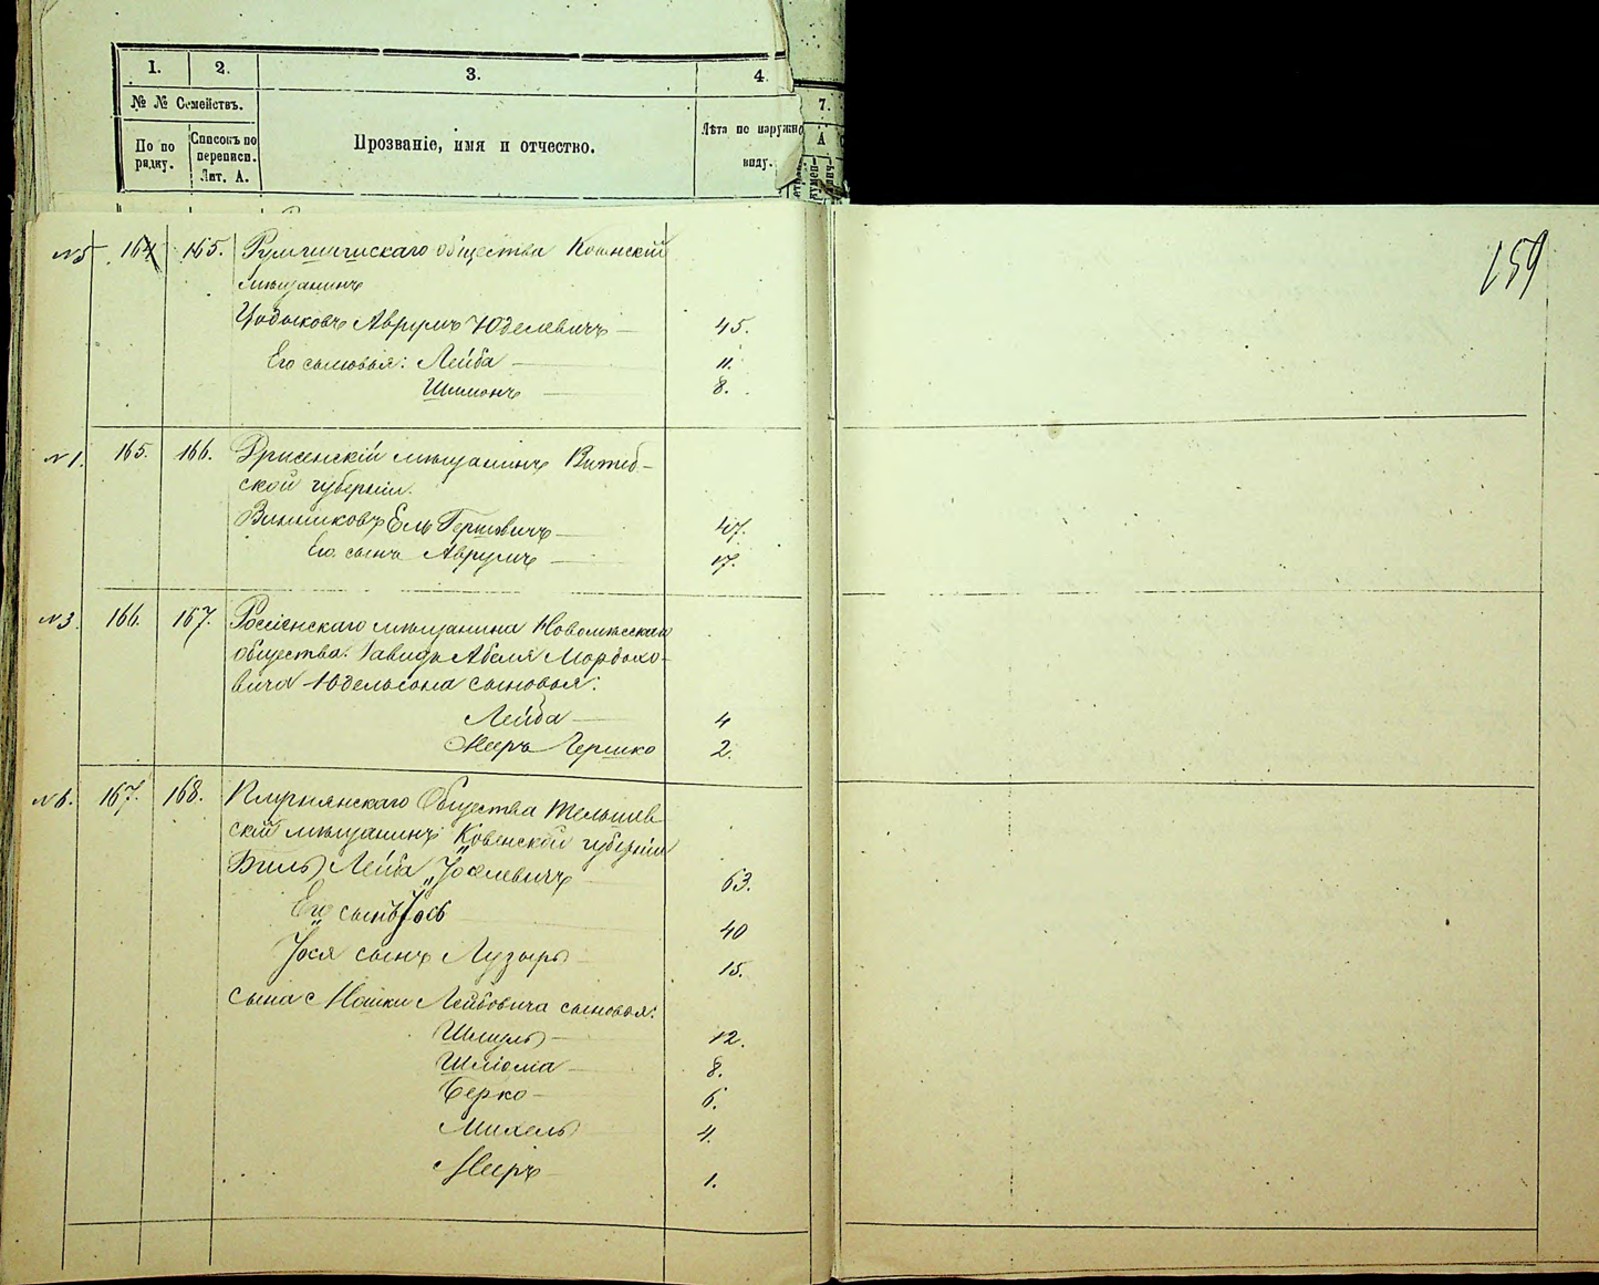 1. 2. 3. 4.
№ № Семействъ.
По по рядку.
Списокъ по переписи. Лит. А.
Прозваніе, имя и отчество.
Лѣта по наружно
виду.
7.
А
159
№5 164 165. Румшишскаго общества Ковенскій
мѣщанинъ
Цодыковъ Аврумъ Юделевичъ 45.
Его сыновья: Лейба 11.
Шимонъ 8.
№1. 165. 166. Дрисенскій мѣщанинъ Витеб-
ской губерніи.
Винниковъ Ель Гершовичъ 47.
Его сынъ Аврумъ 17.
№3. 166. 167. Россіенскаго мѣщанина Новомѣсскаго
общества: Давида Абеля Мордхо-
вича Юдельсона сыновья:
Лейба 4
Мееръ Гершко 2.
№6. 167. 168. Общества Тельшев
скій мѣщанинъ Ковенской губерніи
Лейба Іоселевичъ 63.
Его сынъ Іось 40
Іося сынъ Лузырь 15.
Сына Мошки Лейбовича сыновья:
Шмуль 12.
Шліома 8.
Берко 6.
Михель 4.
Меиръ 1.